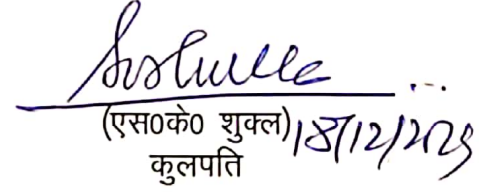 (एस0के0 शुक्ल) 18/12/2025
कुलपति